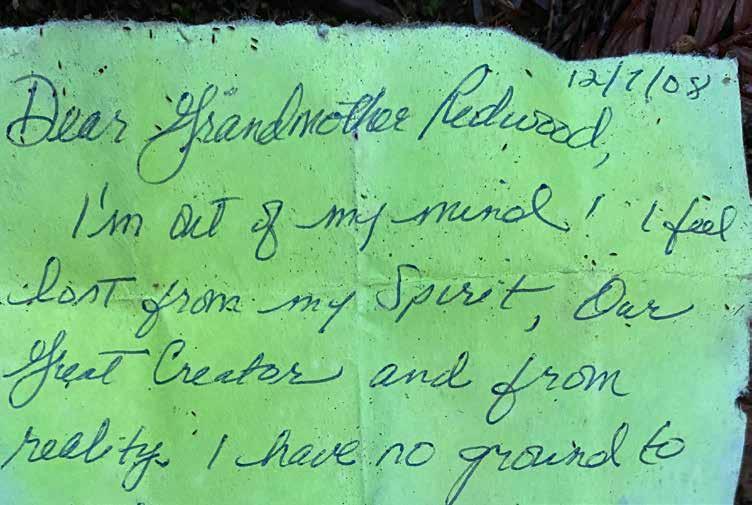 12/7/08
Dear Grandmother Redwood,
I'm out of my mind! I feel
lost from my Spirit, Our
Great Creator and from
reality. I have no ground to